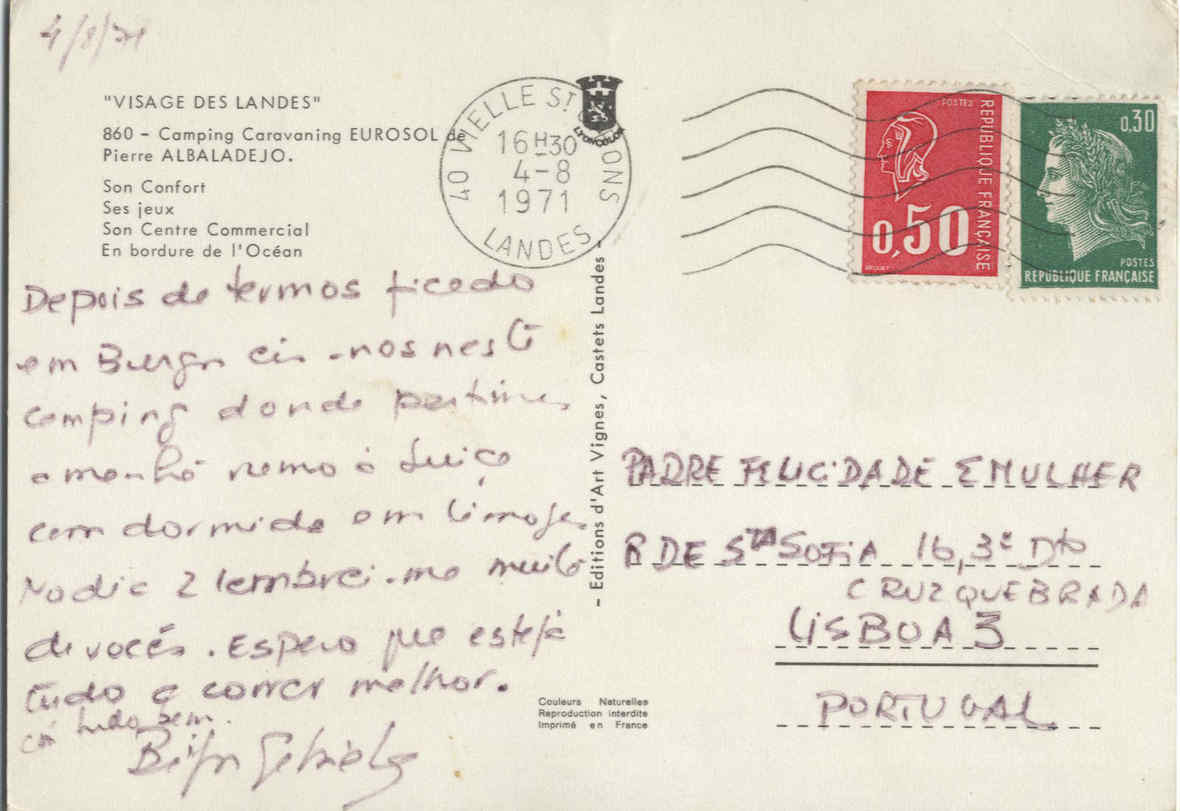 4/8/71
"VISAGE DES LANDES"
860 - Camping Caravaning EUROSOL de
Pierre ALBALADEJO.
Son Confort
Ses jeux
Son Centre Commercial
En bordure de l'Océan
40 VIELLE ST
16H30
4-8
1971
LANDES
LYONCOLOR
POSTES
REPUBLIQUE FRANÇAISE
0,50
0,30
POSTES
REPUBLIQUE FRANÇAISE
Depois de termos ficado
em Burgos eis-nos neste
camping donde partimos
amanhã rumo à Suiça
com dormida em Limoges
No dia 2 lembrei-me muito
de vocês. Espero que esteja
tudo a correr melhor.
cá tudo bem.
- Editions d'Art Vignes, Castets Landes -
PADRE FELICIDADE E MULHER
R DE STA SOFIA 16, 3º Dto
CRUZ QUEBRADA
LISBOA 3
PORTUGAL
Couleurs Naturelles
Reproduction interdite
Imprimé en France